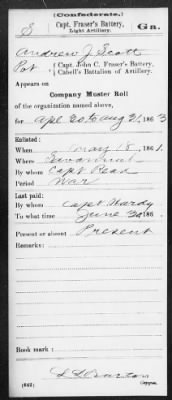 (Confederate.)
S Capt. Fraser's Battery, Light Artillery. Ga.
Andrew J. Scott
Pvt Capt. John C. Fraser's Battery,
Cabell's Battalion of Artillery.
Appears on
Company Muster Roll
of the organization named above,
for Apl 30 to Aug 31, 1863
Enlisted:
When May 18, 1861.
Where Savannah
By whom Capt Read
Period War
Last paid:
By whom Capt Hardy
To what time June 30 186
Present or absent Present
Remarks:
Book mark:
(642) Copyist.